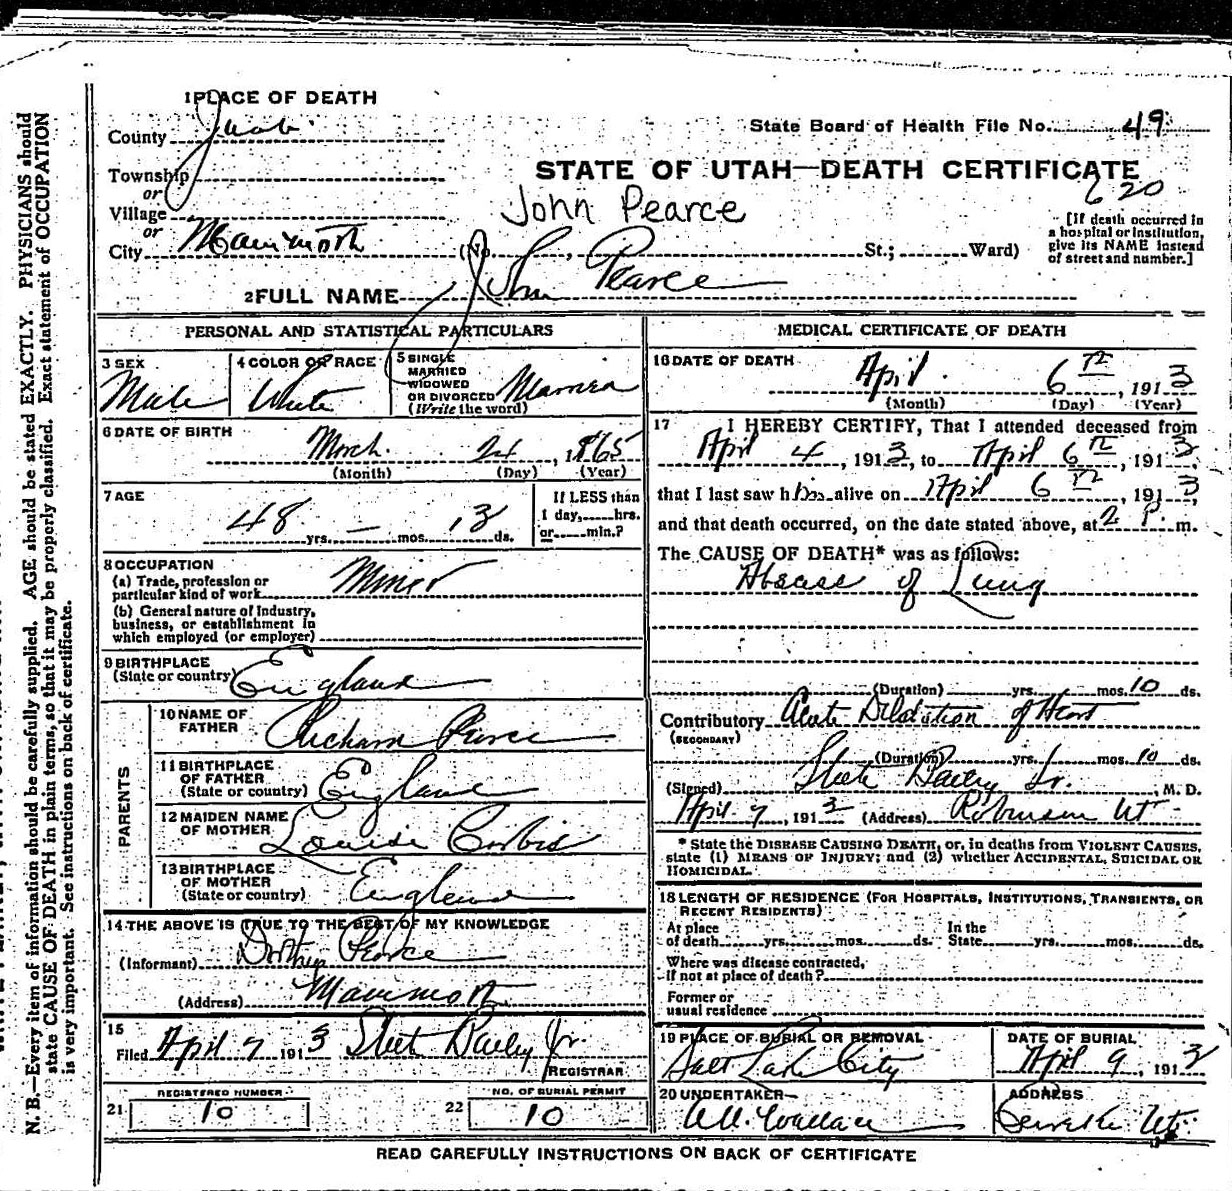 1 PLACE OF DEATH
County Juab
State Board of Health File No. 49
Township
or
Village
or
City Mammoth
STATE OF UTAH—DEATH CERTIFICATE
620
John Pearce
(No. , St.; Ward)
[If death occurred in a hospital or institution, give its NAME instead of street and number.]
2 FULL NAME John Pearce
PERSONAL AND STATISTICAL PARTICULARS
3 SEX
Male
4 COLOR OR RACE
White
5 SINGLE
MARRIED
WIDOWED
OR DIVORCED
(Write the word)
Married
6 DATE OF BIRTH
March 24, 1865
(Month) (Day) (Year)
7 AGE
48 yrs. — mos. 13 ds.
If LESS than
1 day, hrs.
or min.?
8 OCCUPATION
(a) Trade, profession or
particular kind of work Miner
(b) General nature of Industry,
business, or establishment in
which employed (or employer)
9 BIRTHPLACE
(State or country) England
PARENTS
10 NAME OF
FATHER Richard Pearce
11 BIRTHPLACE
OF FATHER
(State or country) England
12 MAIDEN NAME
OF MOTHER Louise
13 BIRTHPLACE
OF MOTHER
(State or country) England
14 THE ABOVE IS TRUE TO THE BEST OF MY KNOWLEDGE
(Informant) Pearce
(Address) Mammoth
15
Filed April 7 1913 Steele Bailey Jr.
REGISTRAR
REGISTERED NUMBER
21 10
NO. OF BURIAL PERMIT
22 10
MEDICAL CERTIFICATE OF DEATH
16 DATE OF DEATH
April 6th, 1913
(Month) (Day) (Year)
17 I HEREBY CERTIFY, That I attended deceased from
April 4, 1913, to April 6th, 1913,
that I last saw him alive on April 6th, 1913
and that death occurred, on the date stated above, at 2 P. m.
The CAUSE OF DEATH* was as follows:
Absess of Lung
(Duration) yrs. mos. 10 ds.
Contributory Acute Dilatation of Heart
(SECONDARY)
(Duration) yrs. mos. 10 ds.
(Signed) Steele Bailey Jr. , M. D.
April 7, 1913 (Address) Robinson Ut
* State the DISEASE CAUSING DEATH, or, in deaths from VIOLENT CAUSES,
state (1) MEANS OF INJURY; and (2) whether ACCIDENTAL, SUICIDAL OR
HOMICIDAL.
18 LENGTH OF RESIDENCE (FOR HOSPITALS, INSTITUTIONS, TRANSIENTS, OR
RECENT RESIDENTS)
At place
of death yrs. mos. ds.
In the
State yrs. mos. ds.
Where was disease contracted,
If not at place of death?
Former or
usual residence
19 PLACE OF BURIAL OR REMOVAL
Salt Lake City
DATE OF BURIAL
April 9, 1913
20 UNDERTAKER
Wallace
ADDRESS
Eureka Ut.
READ CAREFULLY INSTRUCTIONS ON BACK OF CERTIFICATE
N. B.—Every item of information should be carefully supplied. AGE should be stated EXACTLY. PHYSICIANS should
state CAUSE OF DEATH in plain terms, so that it may be properly classified. Exact statement of OCCUPATION
is very important. See instructions on back of certificate.